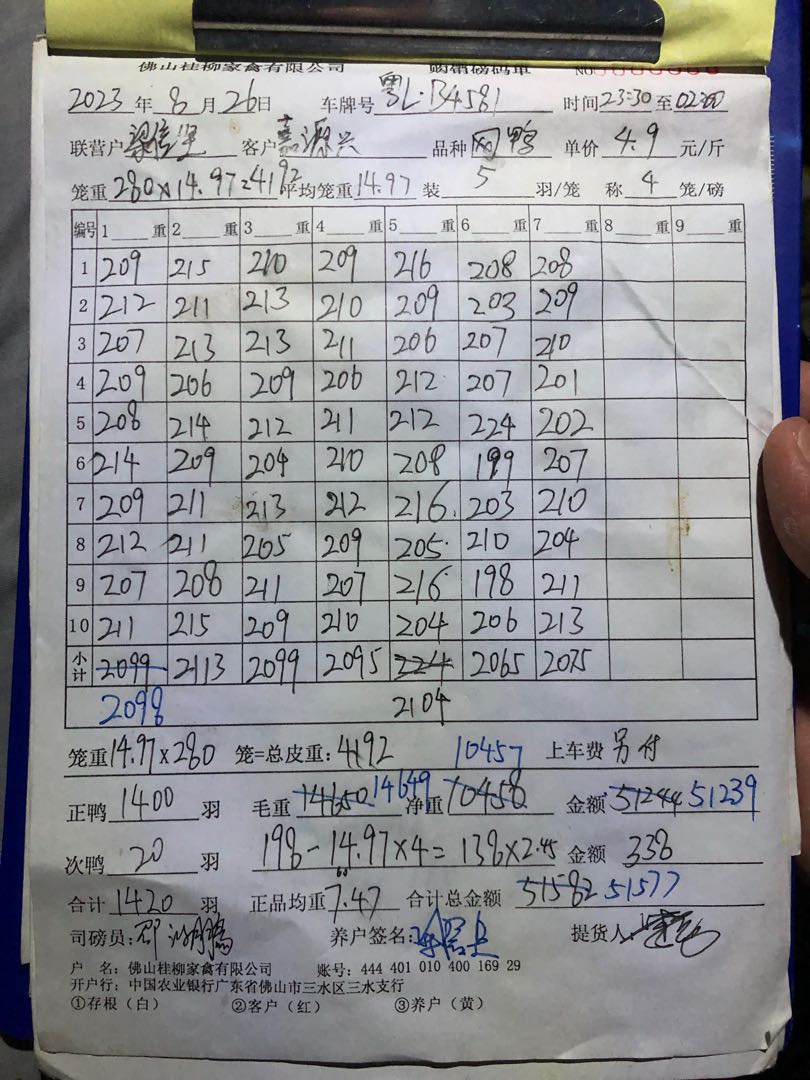 佛山桂柳家禽有限公司 购销磅码单 NO
2023 年 8 月 26 日 车牌号 粤L·B4581 时间 23:30 至 02:00
联营户 客户 嘉源兴 品种 网鸭 单价 4.9 元/斤
笼重 280×14.97=4192 平均笼重 14.97 装 5 羽/笼 称 4 笼/磅
编号 1 重 2 重 3 重 4 重 5 重 6 重 7 重 8 重 9 重
1 209 215 210 209 216 208 208
2 212 211 213 210 209 203 209
3 207 213 213 211 206 207 210
4 209 206 209 206 212 207 201
5 208 214 212 211 212 224 202
6 214 209 204 210 208 199 207
7 209 211 213 212 216 203 210
8 212 211 205 209 205 210 204
9 207 208 211 207 216 198 211
10 211 215 209 210 204 206 213
小计 2099 2113 2099 2095 224 2065 2075
2098 2104
笼重 14.97×280 笼=总皮重: 4192 10457 上车费 另付
正鸭 1400 羽 毛重 14650 14649 净重 10458 金额 51244 51239
次鸭 20 羽 198-14.97×4=138×2.45 金额 338
60
合计 1420 羽 正品均重 7.47 合计总金额 51582 51577
司磅员: 养户签名: 提货人:
户 名: 佛山桂柳家禽有限公司 账号: 444 401 010 400 169 29
开户行: 中国农业银行广东省佛山市三水区三水支行
①存根（白） ②客户（红） ③养户（黄）